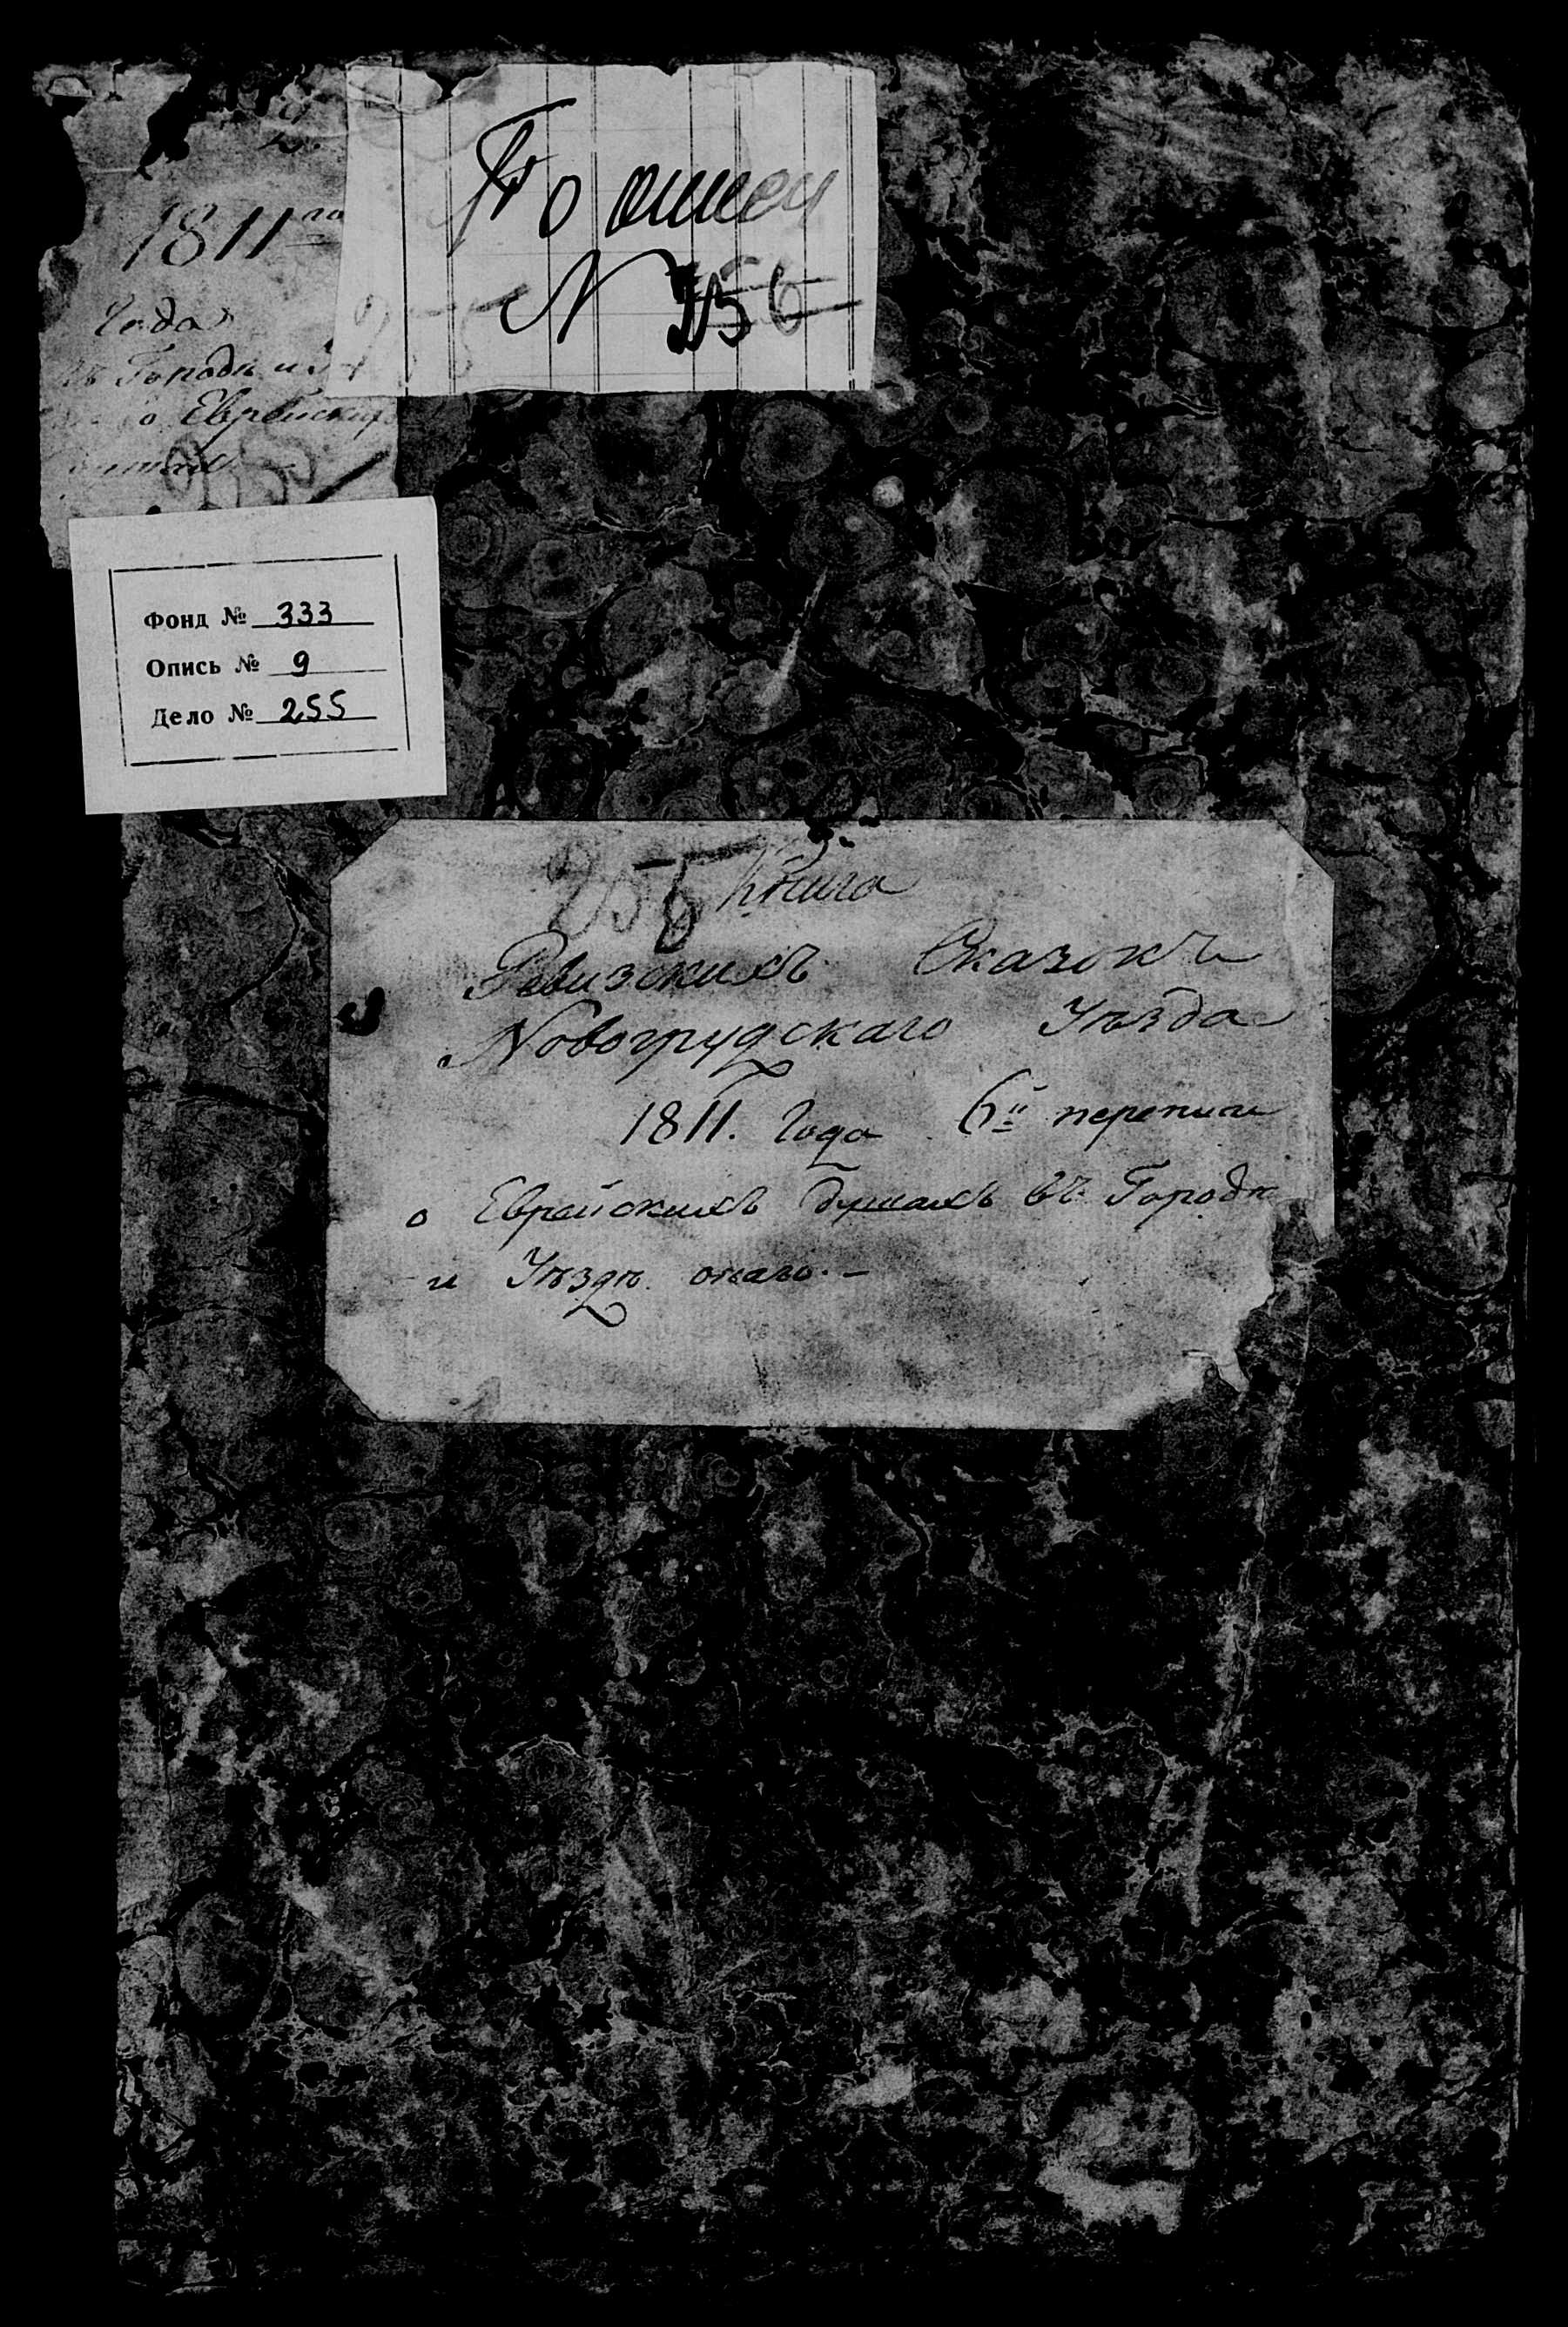 1811го
Года
Городѣ и
о Еврейских
По описи
N
255
Фонд № 333
Опись № 9
Дело № 255
255 Книга
Ревизскихъ Сказокъ
Новогрудскаго Уѣзда
1811. Года 6й переписи
о Еврейскихъ душахъ въ Городѣ
и Уѣздѣ онаго. –